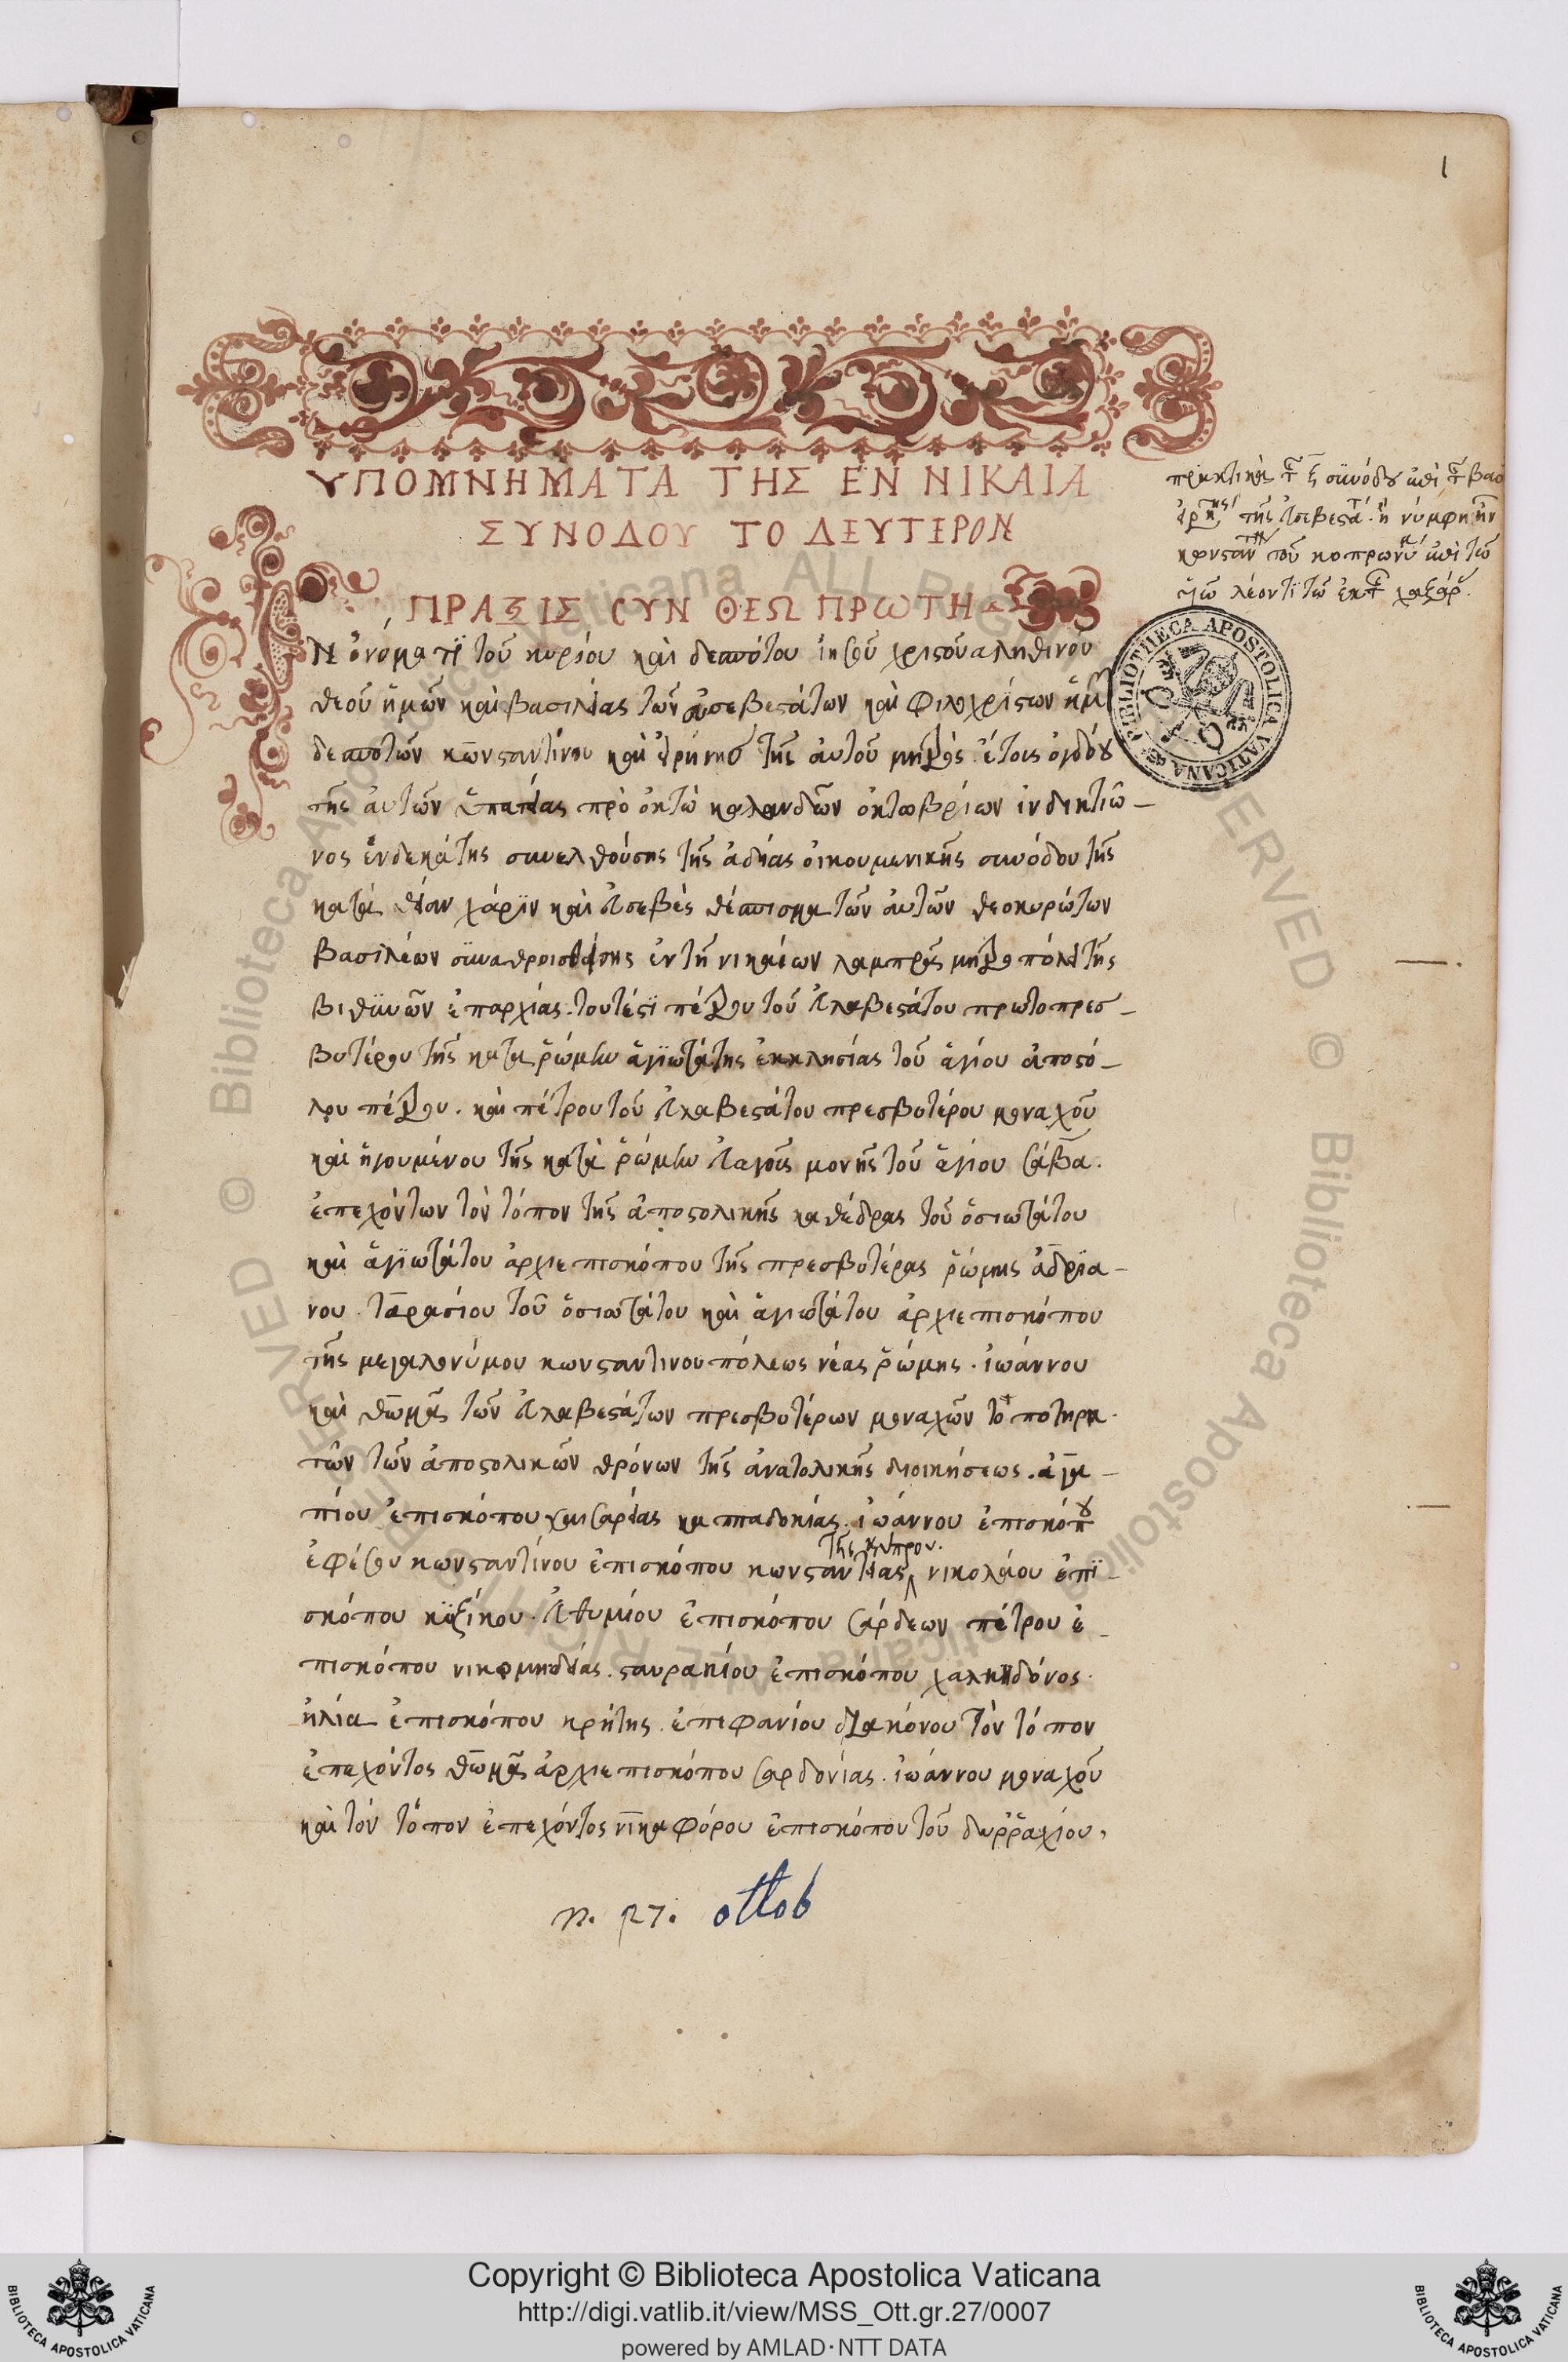 1
ΥΠΟΜΝΗΜΑΤΑ ΤΗΣ ΕΝ ΝΙΚΑΙΑ
ΣΥΝΟΔΟΥ ΤΟ ΔΕΥΤΕΡΟΝ
ΠΡΑΞΙΣ CΥΝ ΘΕΩ ΠΡΩΤΗ
Ν ὀνόματϊ τοῦ κυρίου καὶ δεσπότου ἰησοῦ χριστοῦ αληθινοῦ
θεοῦ ἡμῶν καὶ βασιλείας τῶν εὐσεβεστάτων καὶ φιλοχρίστων ἡμ
δεσποτῶν κωνσταντίνου καὶ εἰρήνησ τῆς ἀυτοῦ μητρὸς. ἔτους ὀγδόου
τῆς ἀυτῶν ὑπατείας πρὸ ὀκτὼ καλανδῶν ὀκτωβρίων ἰνδικτιῶ–
νος ἑνδεκάτης συνελθούσης τῆς ἁγίας ὀικουμενικῆς συνόδου τῆς
κατὰ θείαν χάρϊν καὶ εὐσεβὲς θέσπισμα τῶν ἀυτῶν θεοκυρώτων
βασιλέων συναθροισθείσης ἐν τῆ νικαέων λαμπρᾶς μητροπόλει τῆς
βιθϋνῶν ἐπαρχίας. τουτέστϊ πέτρου τοῦ εὐλαβεστάτου πρωτοπρεσ–
βυτέρου τῆς κατα ῥώμην ἁγϊωτάτης ἐκκλησίας τοῦ ἁγίου ἀποστό–
λου πέτρου. καὶ πέτρου τοῦ εὐλαβεστάτου πρεσβυτέρου μοναχοῦ
καὶ ἡγουμένου τῆς κατὰ ῥώμην εὐαγοῦς μονῆς τοῦ ἁγίου σάβα.
ἐπεχόντων τὸν τόπον τῆς ἀποστολικῆς καθέδρας τοῦ ὁσιωτάτου
καὶ ἁγϊωτάτου ἀρχιεπισκόπου τῆς πρεσβυτέρας ῥώμης ἀδρϊα–
νου. ταρασίου τοῦ ὁσιωτάτου καὶ ἁγιωτάτου ἀρχιεπισκόπου
τῆς μεγαλονύμου κωνσταντινουπόλεως νέας ῥώμης. ἰωάννου
καὶ θωμᾶ τῶν εὐλαβεστάτων πρεσβυτέρων μοναχῶν το ποτηρη
τῶν τῶν ἀποστολικῶν θρόνων τῆς ἀνατολικῆς διοικήσεως. ἀγα–
πίου ἐπισκόπου καισαρείας καππαδοκίας. ἰωάννου ἐπισκόπου
τῆς κύπρου.
ἐφέσου κωνσταντίνου ἐπισκόπου κωνσταντείας νικολάου ἐπϊ–
σκόπου κϋζίκου. εὐθυμίου ἐπισκόπου σάρδεων πέτρου ἐ–
πισκόπου νικομηδείας. σταυρακίου ἐπισκόπου χαλκηδόνος.
ἠλία ἐπισκόπου κρήτης. ἐπιφανίου διακόνου τὸν τόπον
ἐπεχόντος θωμᾶ ἀρχιεπισκόπου σαρδονίας. ἰωάννου μοναχοῦ
καὶ τὸν τόπον ἐπεχόντος νικηφόρου ἐπισκόπου τοῦ δυρραχίου,
n. 27. ottob
BIBLIOTECA APOSTOLICA VATICANA
Copyright © Biblioteca Apostolica Vaticana
http://digi.vatlib.it/view/MSS_Ott.gr.27/0007
powered by AMLAD·NTT DATA